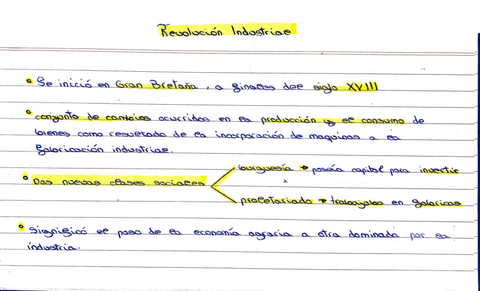 Revolución Industrial
• Se inició en Gran Bretaña, a finales del siglo XVIII
• conjunto de cambios ocurridos en la producción y el consumo de
bienes como resultado de la incorporación de maquinas a la
fabricación industrial.
• Dos nuevas clases sociales
burguesía → poseía capital para invertir
proletariado → trabajaba en fábricas
• Significó el paso de la economía agraria a otra dominada por la
industria.